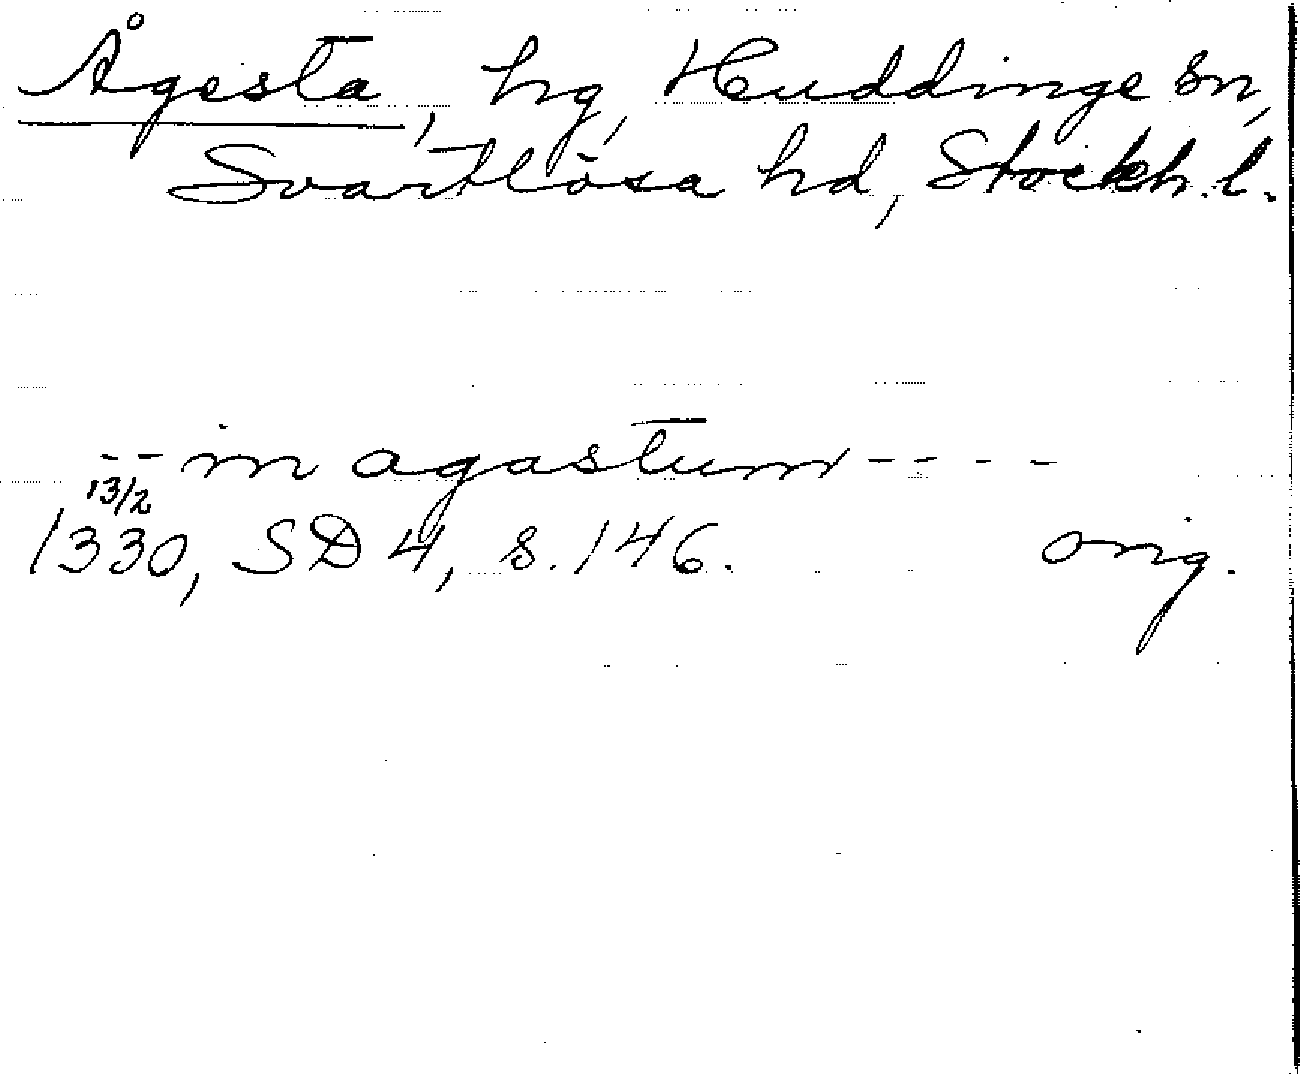 Ågesta, hg, Huddinge sn,
Svartlösa hd, Stockh. l.
-- in agastum ----
13/2
1330, SD 4, s. 146. orig.